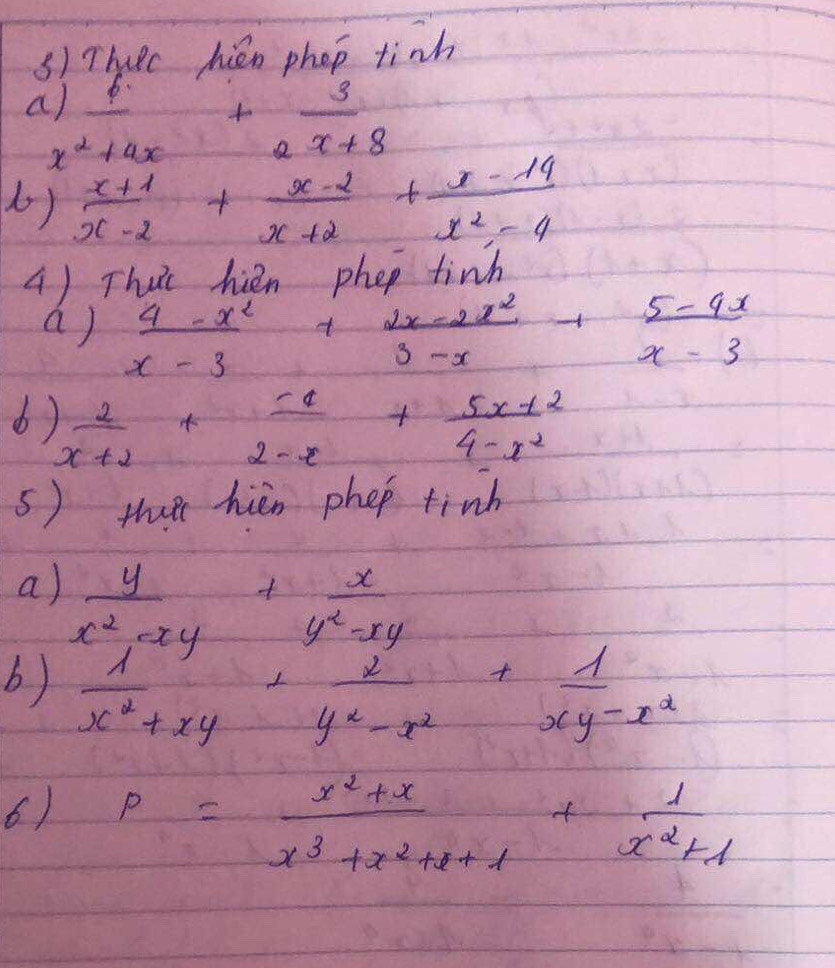 3) Thực hiện phép tính
a) 6/(x² + 4x) + 3/(2x + 8)
b) (x+1)/(x-2) + (x-2)/(x+2) + (x-14)/(x²-4)
4) Thực hiện phép tính
a) (4-x²)/(x-3) + (2x-2x²)/(3-x) + (5-4x)/(x-3)
b) 2/(x+2) + /(2-x) + (5x+2)/(4-x²)
5) thực hiện phép tính
a) y/(x²-xy) + x/(y²-xy)
b) 1/(x²+xy) + 2/(y²-x²) + 1/(xy-x²)
6) P = (x²+x)/(x³+x²+x+1) + 1/(x²+1)